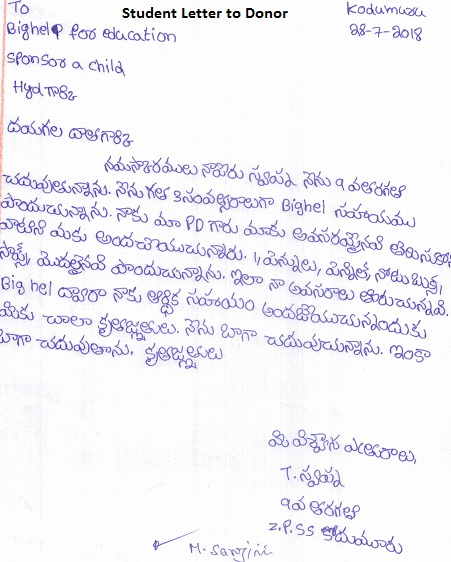 Student Letter to Donor
To
Kodumuru
Bighelp for education
28-7-2018
Sponsor a child
Hyd గార్కి
దయగల దాతగార్కి
నమస్కారములు నాపేరు స్వప్న నేను 9 వతరగతి
చదువుతున్నాను. నేను గత 3 సంవత్సరాలుగా Bighel సహాయము
పొందుచున్నాను. నాకు మా PD గారు మాకు అవసరమైనవి తెలుసుకొని
వాటిని మాకు అందచేయుచున్నారు. పెన్నులు, పెన్సిల్, నోటుబుక్స్,
సాక్స్, మొదలైనవి పొందుచున్నాను. ఇలా నా అవసరాలు తీరుచున్నవి.
Big hel ద్వారా నాకు ఆర్థిక సహాయం అందజేయుచున్నందుకు
మీకు చాలా కృతజ్ఞతలు. నేను బాగా చదువుచున్నాను. ఇంకా
బాగా చదువుతాను. కృతజ్ఞతలు
మీ విశ్వాస
T. స్వప్న
9వ తరగతి
Z.P.SS కోడుమూరు
M. Sanjini